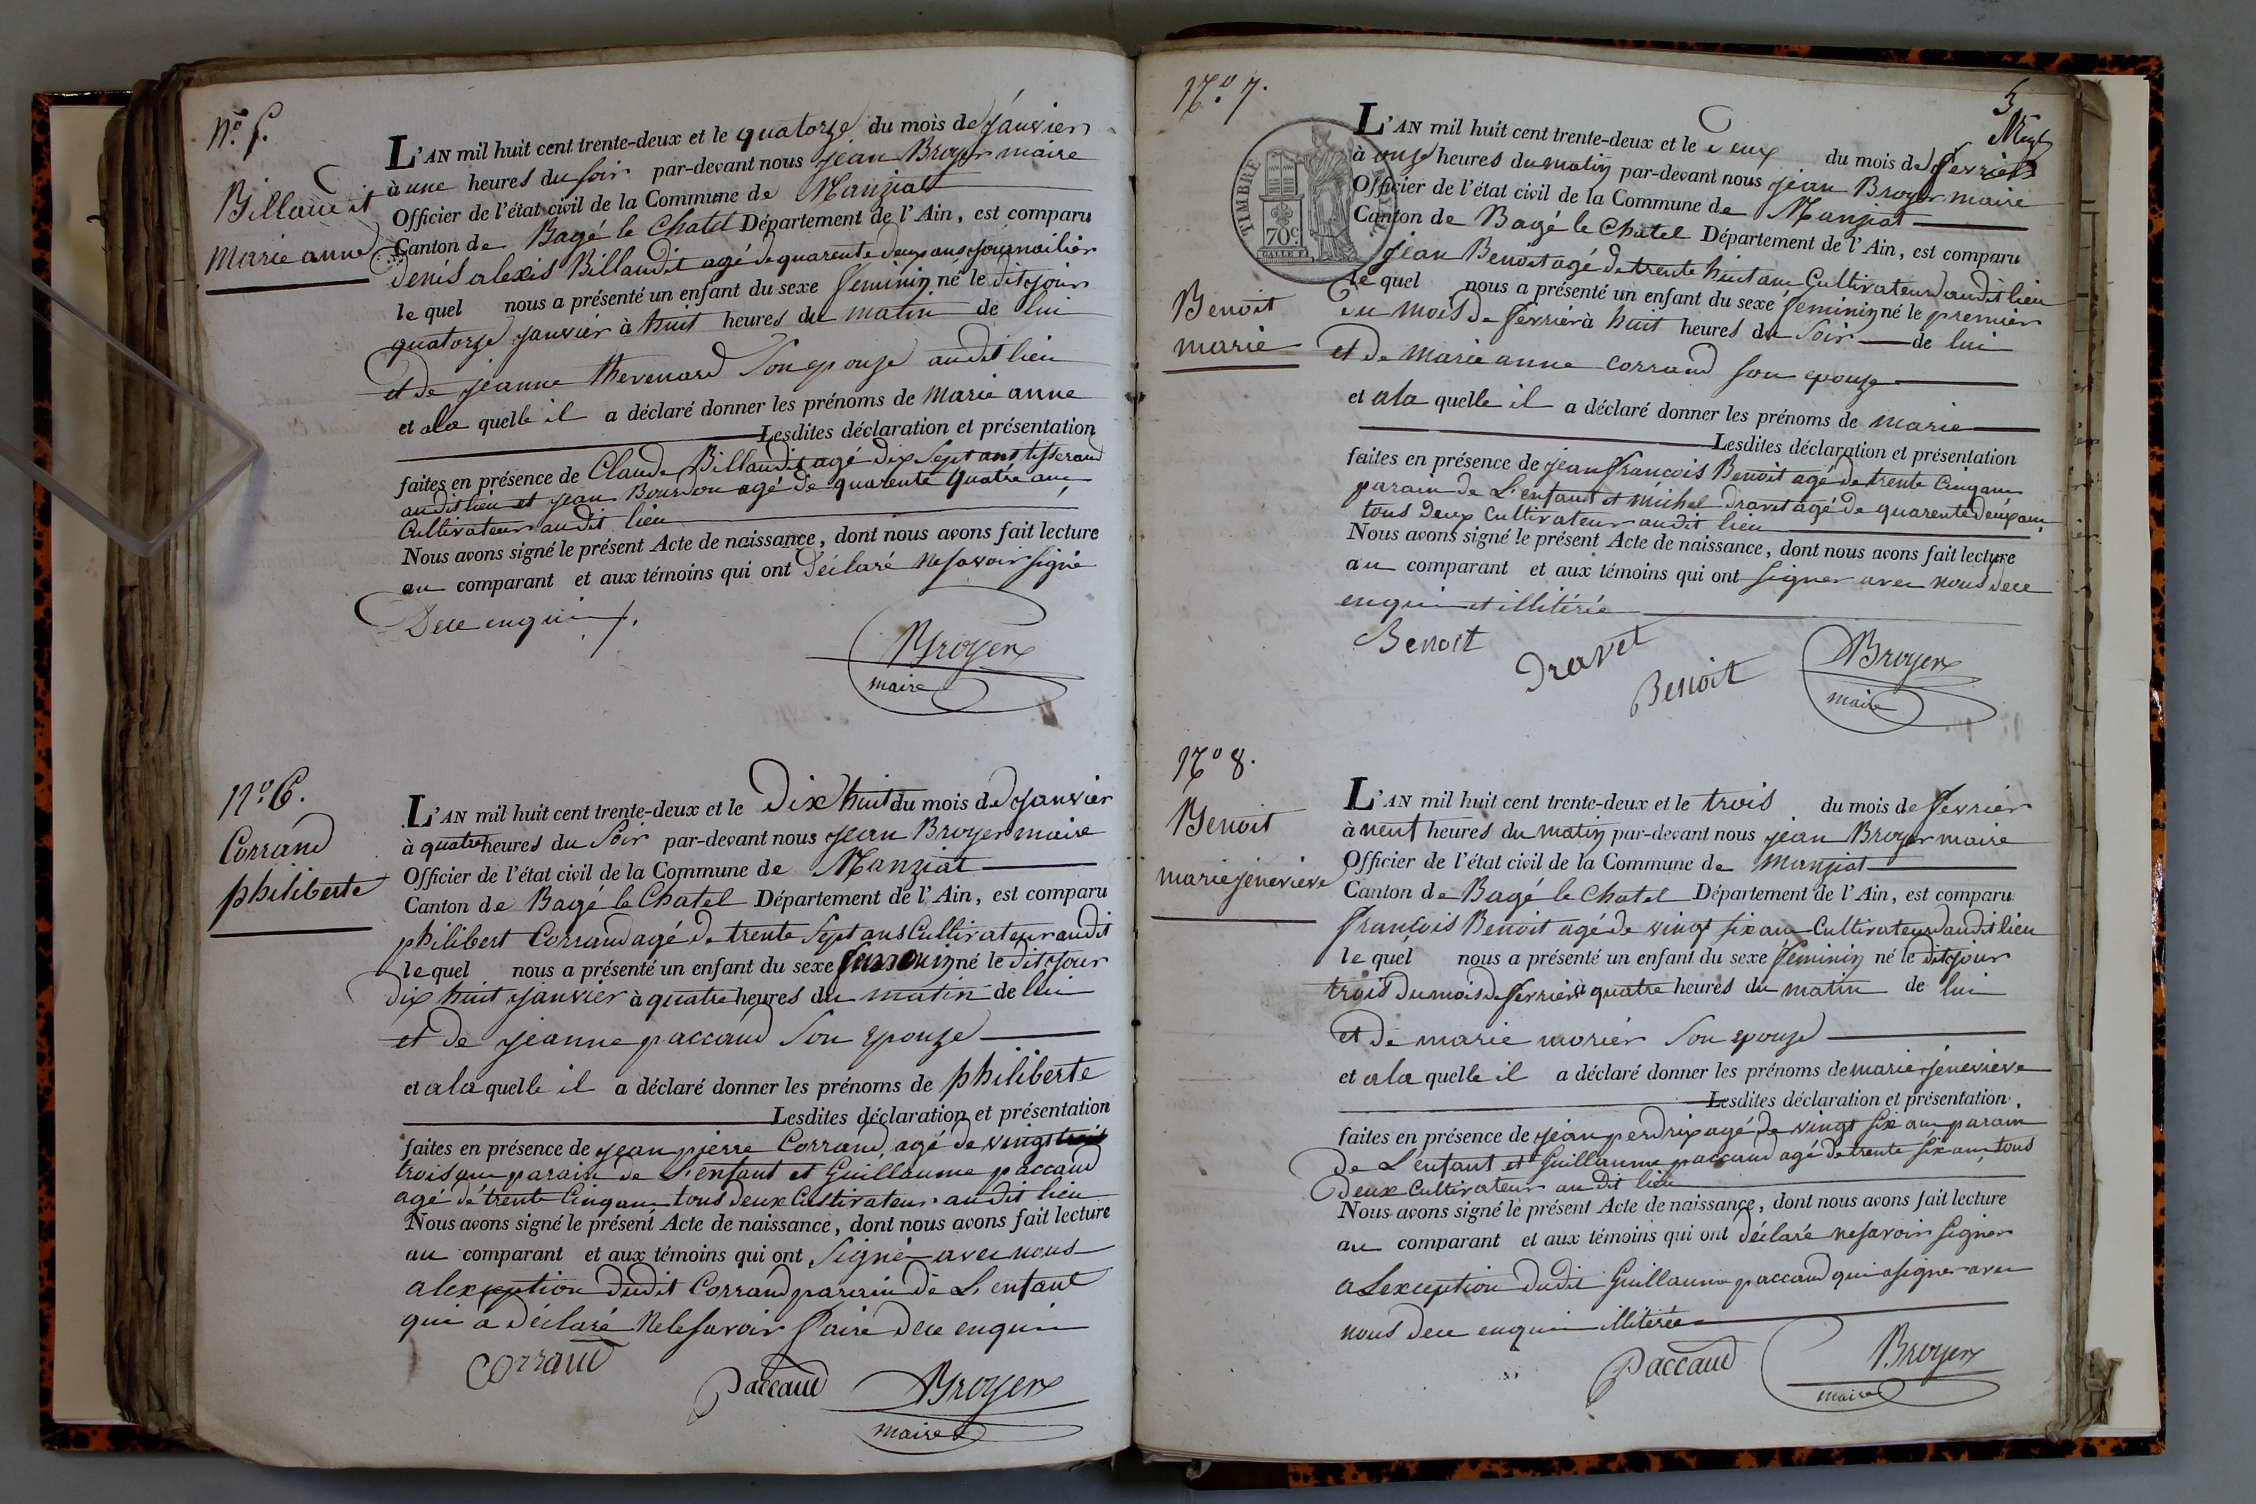 N.o 5.
Billaudit
Marie anne
L'AN mil huit cent trente-deux et le quatorze du mois de janvier
à une heures du soir par-devant nous jean Broyer maire
Officier de l'état civil de la Commune de Manziat
Canton de Bagé le Chatel Département de l'Ain, est comparu
denis alexis Billaudit agé de quarente deux ans journailier
le quel nous a présenté un enfant du sexe feminin né le dit jour
quatorze janvier à huit heures du matin de lui
et de jeanne thevenard son epouze audit lieu
et ala quelle il a déclaré donner les prénoms de Marie anne
Lesdites déclaration et présentation
faites en présence de Claude Billaudit agé dix sept ans tisserand
audit lieu et jean Bourdon agé de quarente quatre ans
Cultivateur audit lieu
Nous avons signé le présent Acte de naissance, dont nous avons fait lecture
au comparant et aux témoins qui ont déclaré ne savoir signé
Dece enquis
Broyer
maire
N.o 6.
Corrand
philiberte
L'AN mil huit cent trente-deux et le Dix huit du mois de janvier
à quatre heures du soir par-devant nous jean Broyer maire
Officier de l'état civil de la Commune de Manziat
Canton de Bagé le Chatel Département de l'Ain, est comparu
philibert Corrand agé de trente sept ans Cultivateur audit
le quel nous a présenté un enfant du sexe feminin né le dit jour
dix huit janvier à quatre heures du matin de lui
et de jeanne paccaud son epouze
et ala quelle il a déclaré donner les prénoms de philiberte
Lesdites déclaration et présentation
faites en présence de jean pierre Corrand agé de vingt
trois ans parain de L'enfant et Guillaume paccaud
agé de trente Cinq ans tous deux Cultivateur audit lieu
Nous avons signé le présent Acte de naissance, dont nous avons fait lecture
au comparant et aux témoins qui ont Signé avec nous
alexception dudit Corrand parain de L'enfant
qui a déclaré Nele savoir faire dece enquis
Corrand
Paccaud
Broyer
maire
N.o 7.
5
TIMBRE ROYAL
70c
Benoit
marie
L'AN mil huit cent trente-deux et le Deux du mois de fevrier
à onze heures du matin par-devant nous jean Broyer maire
Officier de l'état civil de la Commune de Manziat
Canton de Bagé le Chatel Département de l'Ain, est comparu
jean Benoit agé de trente huit ans Cultivateur audit lieu
le quel nous a présenté un enfant du sexe feminin né le premier
du mois de fevrier à huit heures du soir de lui
et de marie anne corrand son epouze
et ala quelle il a déclaré donner les prénoms de marie
Lesdites déclaration et présentation
faites en présence de jean francois Benoit agé de trente Cinq ans
parain de L'enfant et michel dravet agé de quarente deux ans
tous deux Cultivateur audit lieu
Nous avons signé le présent Acte de naissance, dont nous avons fait lecture
au comparant et aux témoins qui ont signer avec nous dece
enquis et illitérée
Benoit
Dravet
Benoit
Broyer
maire
N.o 8.
Benoit
marie jenevieve
L'AN mil huit cent trente-deux et le trois du mois de fevrier
à neuf heures du matin par-devant nous jean Broyer maire
Officier de l'état civil de la Commune de manziat
Canton de Bagé le Chatel Département de l'Ain, est comparu
francois Benoit agé de vingt six ans Cultivateur audit lieu
le quel nous a présenté un enfant du sexe feminin né le dit jour
trois du mois de fevrier à quatre heures du matin de lui
et de marie morier son epouze
et ala quelle il a déclaré donner les prénoms de marie jenevieve
Lesdites déclaration et présentation
faites en présence de jean perdrix agé de vingt six ans parain
de L'enfant et Guillaume paccaud agé de trente six ans tous
Deux Cultivateur au dit lieu
Nous avons signé le présent Acte de naissance, dont nous avons fait lecture
au comparant et aux témoins qui ont déclaré ne savoir signer
a Lexception dudit Guillaume paccaud qui a signer avec
nous dece enquis illitérée
Paccaud
Broyer
maire